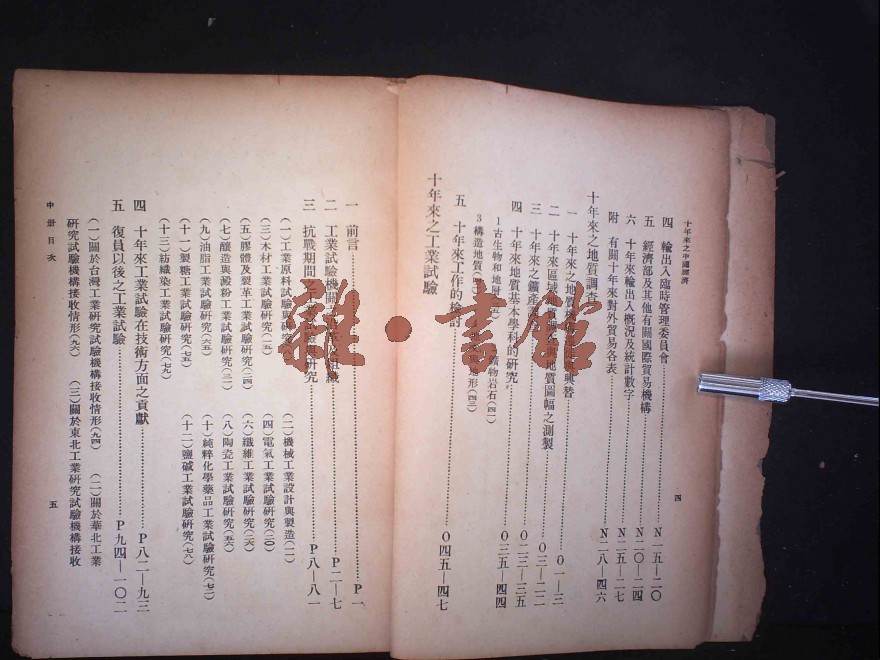 十年來之中國經濟
四 輸出入臨時管理委員會 N一五—二〇
五 經濟部及其他有關國際貿易機構 N二〇—二四
六 十年來輸出入概況及統計數字 N二五—二七
附 有關十年來對外貿易各表 N二八—四六
十年來之地質調查
一 十年來之地質 興替 O一—三
二 十年來區域地質 地質圖幅之測製 O三—二二
三 十年來之鑛產 O二三—三五
四 十年來地質基本學科的研究 O三五—四四
1古生物和地層 礦物岩石(四一)
3構造地質 地形(四三)
五 十年來工作的檢討 O四五—四七
四
十年來之工業試驗
一 前言 P一
二 工業試驗機關 組織 P二—七
三 抗戰期間之工業試驗與研究 P八—八一
(一)工業原料試驗與研究 (二)機械工業設計與製造(一一)
(三)木材工業試驗研究(一五) (四)電氣工業試驗研究(二〇)
(五)膠體及製革工業試驗研究(二四) (六)纖維工業試驗研究(二六)
(七)釀造與澱粉工業試驗研究(三二) (八)陶瓷工業試驗研究(五六)
(九)油脂工業試驗研究(六五) (十)純粹化學藥品工業試驗研究(七三)
(十一)製糖工業試驗研究(七五) (十二)鹽碱工業試驗研究(七六)
(十三)紡織染工業試驗研究(七八)
四 十年來工業試驗在技術方面之貢獻 P八二—九三
五 復員以後之工業試驗 P九四—一〇二
(一)關於台灣工業研究試驗機構接收情形(九四) (二)關於華北工業
研究試驗機構接收情形(九六) (三)關於東北工業研究試驗機構接收
中册目次
五
雜·書館